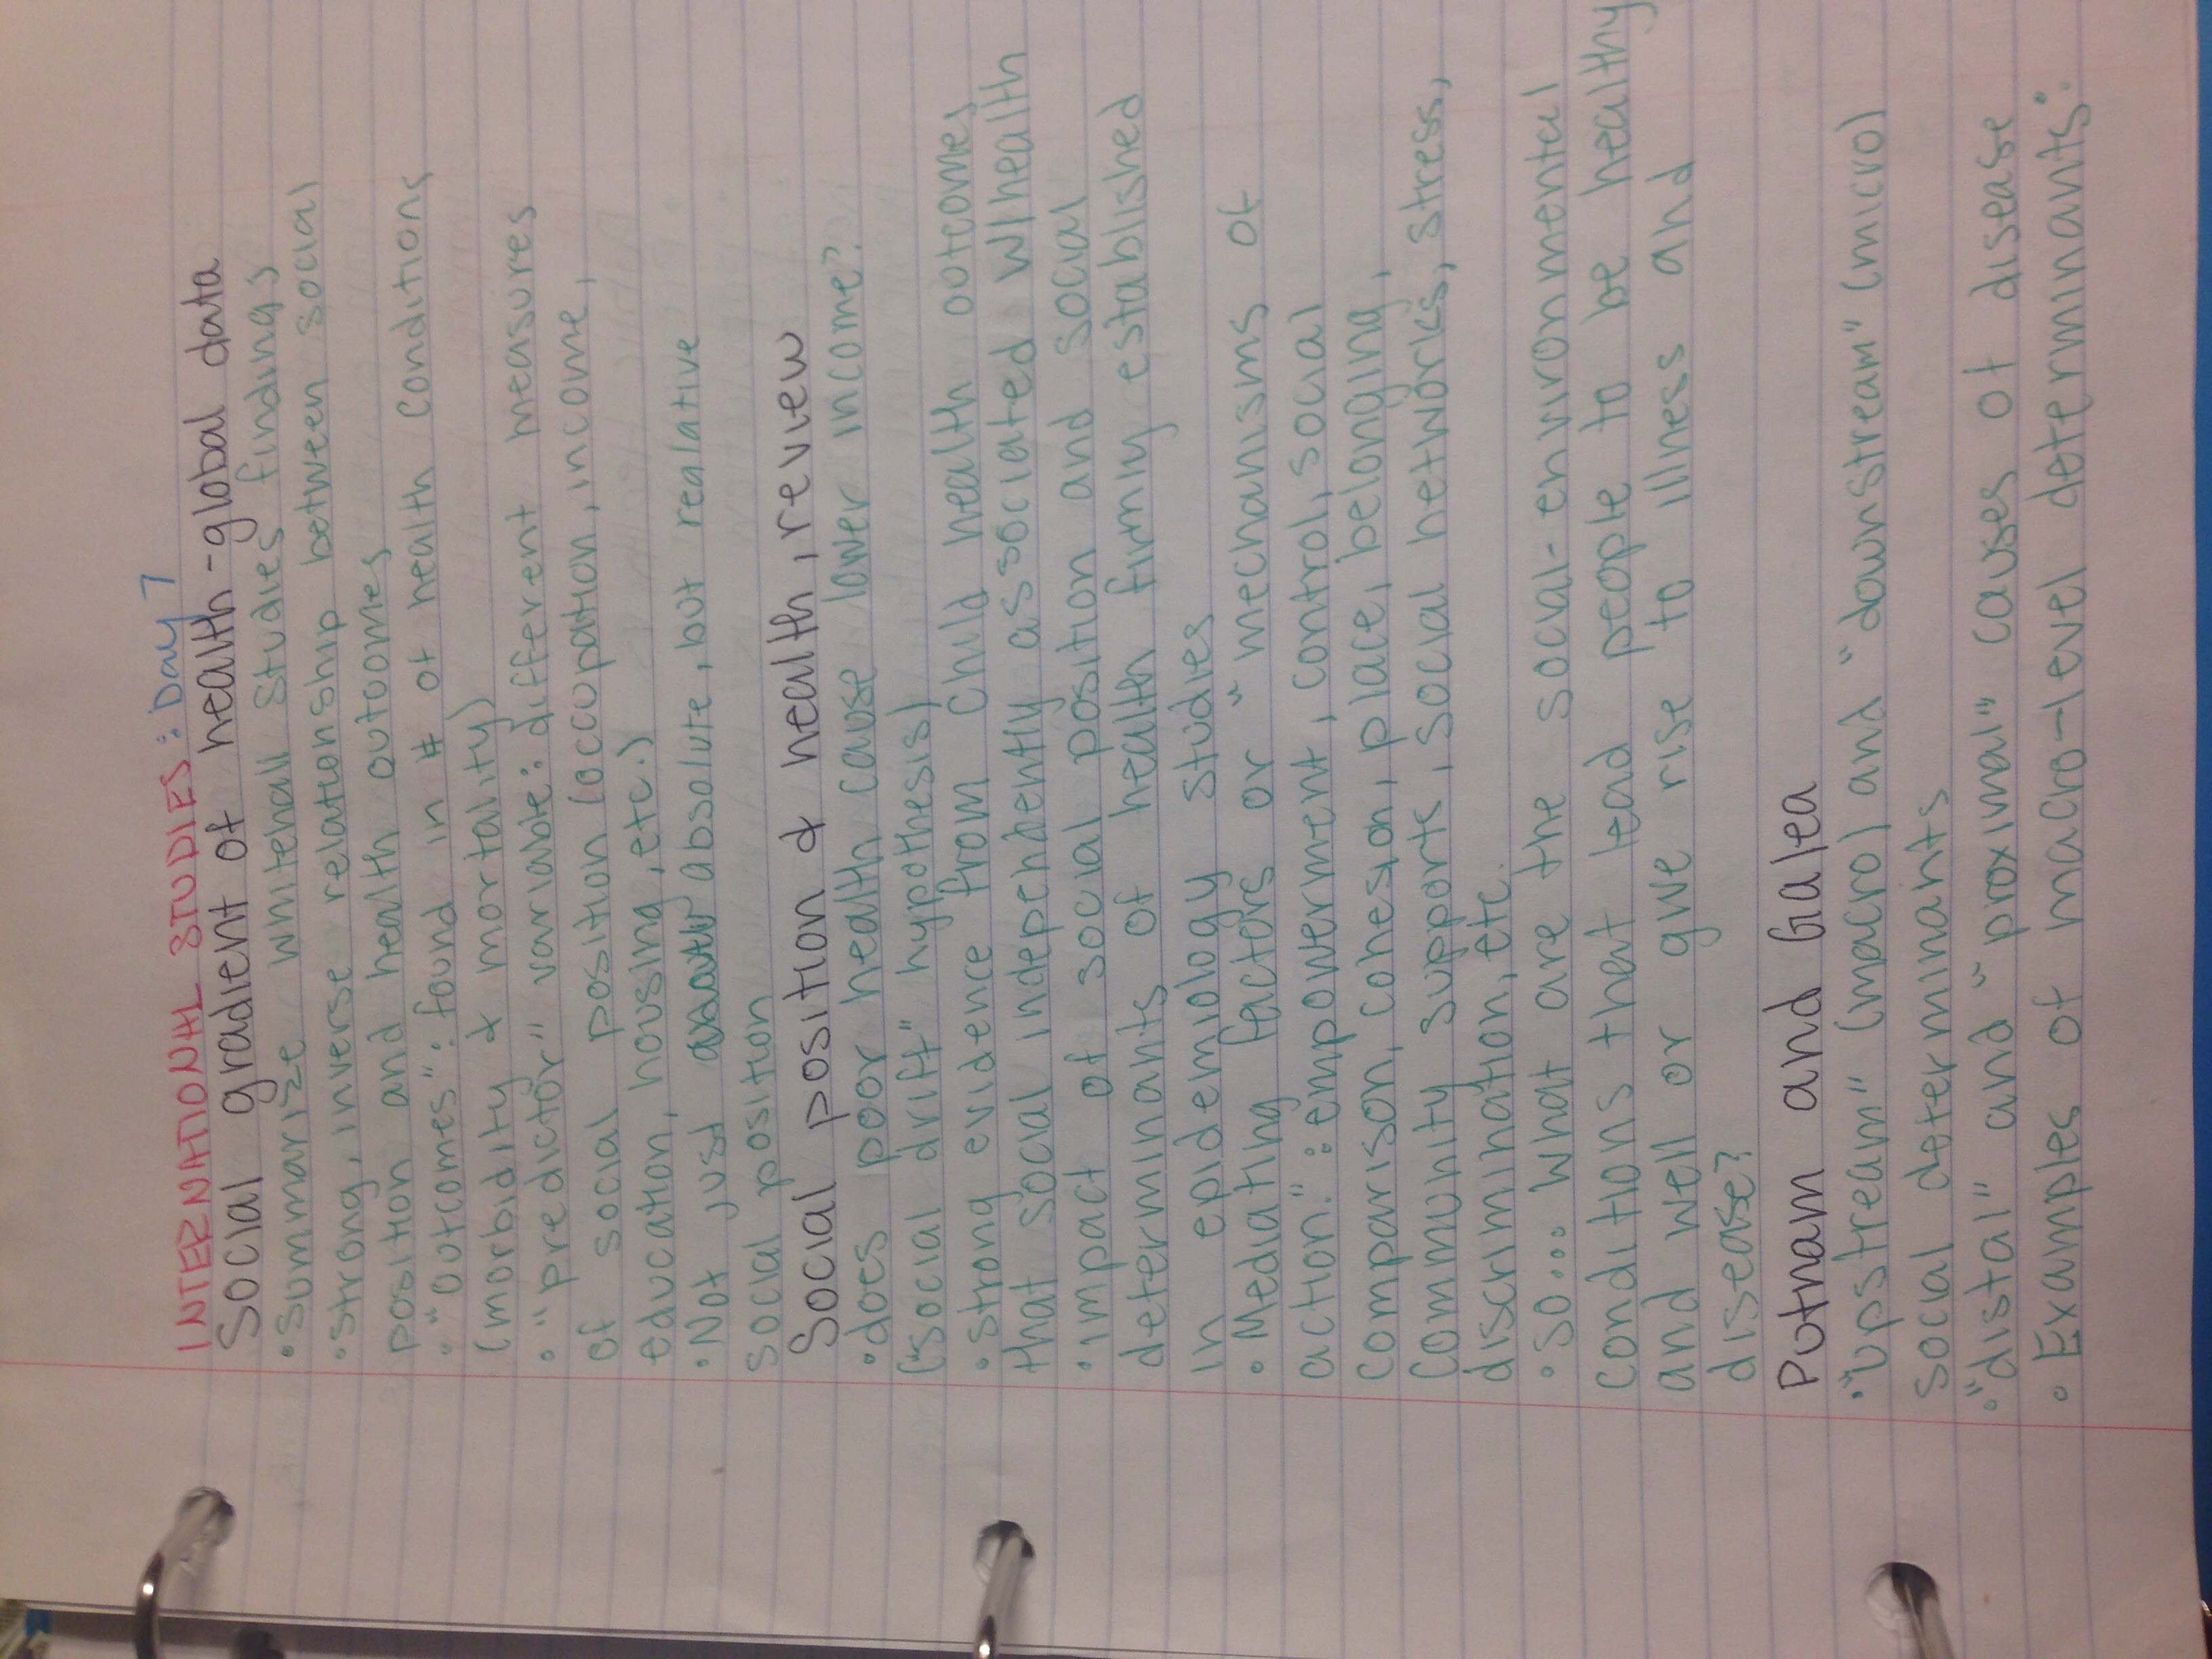 INTERNATIONAL STUDIES: Day 7
Social gradient of health - global data
• Summarize whitehall studies findings
• Strong, inverse relationship between social
position and health outcomes
• "outcomes": found in # of health conditions
(morbidity & mortality)
• "predictor" variable: different measures
of social position (occupation, income,
education, housing, etc.)
• Not just absolute, but realative
social position
Social position & health, review
• does poor health cause lower income?
("social drift" hypothesis)
• strong evidence from child health outcomes
that social independently associated w/health
• impact of social position and social
determinants of health firmly established
in epidemiology studies
• Mediating factors or "mechanisms of
action": empowerment, control, social
comparison, cohesion, place, belonging,
community supports, social networks, stress,
discrimination, etc.
• so... what are the social-environmental
conditions that lead people to be healthy
and well or give rise to illness and
disease?
Putnam and Galea
• "upstream" (macro) and "downstream" (micro)
social determinants
• "distal" and "proximal" causes of disease
• Examples of macro-level determinants: